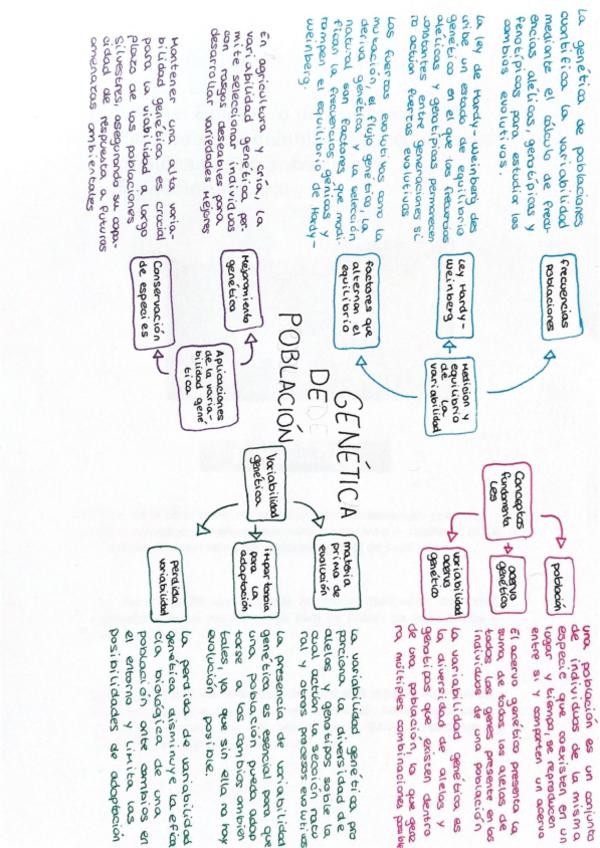 GENÉTICA
DE
POBLACIÓN
Medicion y
equilibrio
de la
variabilidad
frecuencias
poblaciones
La genética de poblaciones
cuantifica la variabilidad
mediante el cálculo de frecu-
encias alélicas, genotípicas y
fenotípicas para estudiar los
cambios evolutivos.
Ley Hardy-
Weinberg
La ley de Hardy-Weinberg des
cribe un estado de equilibrio
genético en el que las frecuencias
alélicas y genotípicas permanecen
constantes entre generaciones si
no actúan fuerzas evolutivas
factores que
alternan el
equilibrio
Las fuerzas evolutivas como la
mutación, el flujo genético, la
deriva genética y la selección
natural son factores que modi-
fican la frecuencias génicas y
rompen el equilibrio de Hardy-
Weinberg.
Aplicaciones
de la varia-
bilidad gené
tica
Mejoramiento
genético
En agricultura y cría, la
variabilidad genética per-
mite seleccionar individuos
con rasgos deseables para
desarrollar variedades mejores
Conservación
de especies
Mantener una alta varia-
bilidad genética es crucial
para la viabilidad a largo
plazo de las poblaciones
silvestres, asegurando su capa-
cidad de respuesta a futuras
amenazas ambientales
Conceptos
fundamenta
les
población
una población es un conjunto
de individuos de la misma
especie que coexisten en un
lugar y tiempo, se reproducen
entre si y comparten un acervo
acervo
genético
El acervo genético presenta la
suma de todos los alelos de
todos los genes presente en los
individuos de una población
variabilidad
acervo
genético
la variabilidad genética es
la diversidad de alelos y
genotipos que existen dentro
de una población, lo que gene
ra, múltiples combinaciones posible
Variabilidad
genética
materia
prima de
evolución
la variabilidad genética pro
porciona la diversidad de
alelos y genotipos sobre la
cual actúan la sección natu
ral y otros procesos evolutivos
importancia
para la
adaptación
la presencia de variabilidad
genética es esencial para que
una población pueda adap
tarse a los cambios ambien
tales, ya que sin ella no hay
evolución posible.
perdida
variabilidad
la perdida de variabilidad
genética disminuye la efica
cia biológica de una
población ante cambios en
el entorno y limita las
posibilidades de adaptación